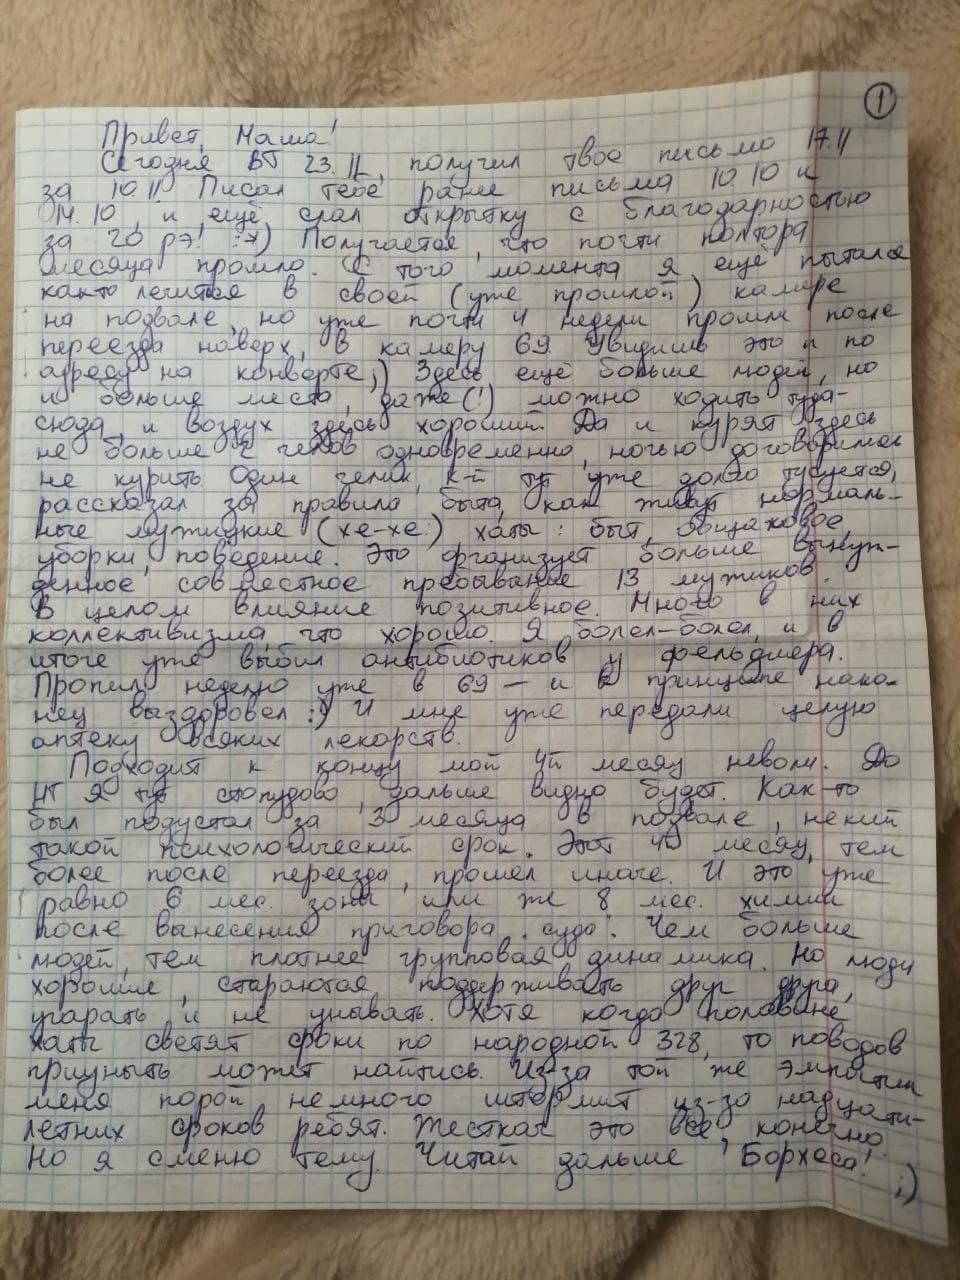 1
Привет, Маша!
Сегодня, ВТ 23.11, получил твое письмо 17.11
за 10.11. Писал тебе ранее письма 10.10 и
14.10, и ещё слал открытку с благодарностью
за 20 рэ! :*) Получается, что почти полтора
месяца прошло. С того момента я ещё пытался
как-то лечиться в своей (уже прошлой) камере
на подвале, но уже почти 4 недели прошли после
переезда наверх, в камеру 69. Увидишь это и по
адресу на конверте ;) Здесь ещё больше людей, но
и больше места, даже (!) можно ходить туда-
сюда, и воздух здесь хороший. Да и курят здесь
не больше 2 челов одновременно, ночью договорились
не курить. Один челик, к-й тут уже долго тусуется,
рассказал за правила быта, как живут нормаль-
ные мужицкие (хе-хе:) хаты: быт, общаковое,
уборки, поведение. Это организует больше вынуж-
денное совместное пребывание 13 мужиков.
В целом влияние позитивное. Много в них
коллективизма, что хорошо. Я болел-болел, и в
итоге уже выбил антибиотиков у фельдшера.
Пропил неделю уже в 69 — и в принципе нако-
нец выздоровел :) И мне уже передали целую
аптеку всяких лекарств.
Подходит к концу мой 4й месяц неволи. До
НГ я тут стопудово, дальше видно будет. Как-то
был подустал за 3 месяца в подвале, некий
такой психологический срок. Этот 4й месяц, тем
более после переезда, прошел иначе. И это уже
равно 6 мес. зоны или же 8 мес. химии
после вынесения приговора суда. Чем больше
людей, тем плотнее групповая динамика. Но люди
хорошие, стараются поддерживать друг друга,
угарать и не унывать. Хотя когда половине
хаты светят сроки по народной 328, то поводов
приуныть может найтись. Из-за той же эмпатии
меня порой немного штормит из-за надцати-
летних сроков ребят. Жесткач это всё, конечно.
Но я сменю тему. Читай дальше "Борхеса!" ;)